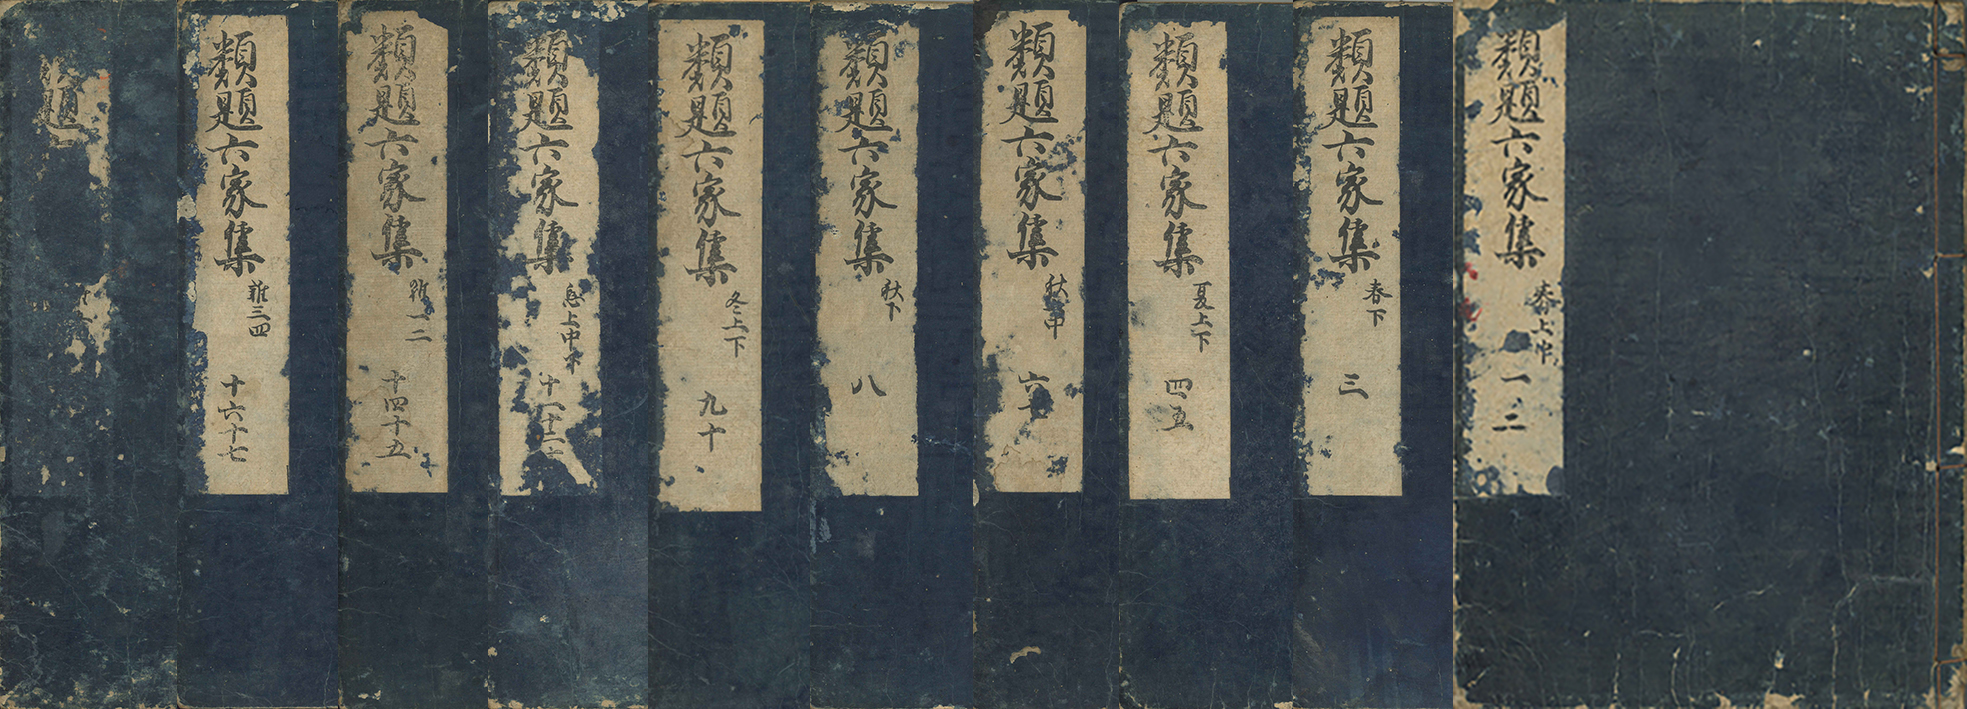 類題六家集 春上中 一二
類題六家集 春下 三
類題六家集 夏上下 四五
類題六家集 秋中 六七
類題六家集 秋下 八
類題六家集 冬上下 九十
類題六家集 恋上中下 十一十二十
類題六家集 雑一二 十四十五
類題六家集 雑三四 十六十七
題